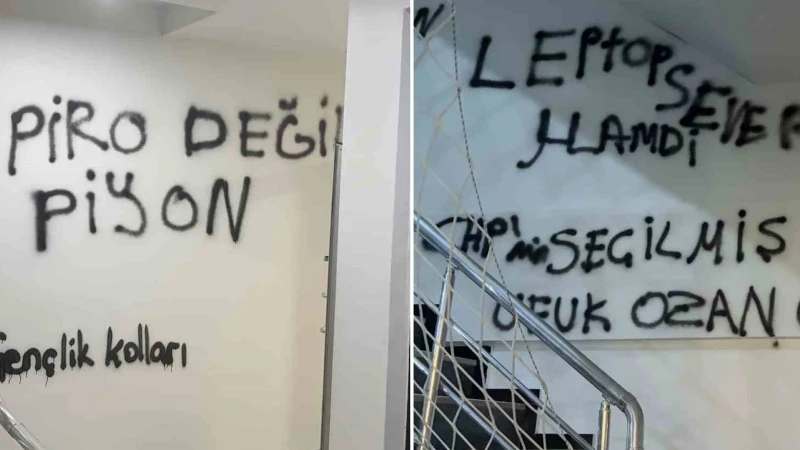 PİRO DEĞİ
PİYON
Gençlik kolları
N
LEPtOP
SEVER
HAMDİ
CHP'
nin SEÇİLMİŞ
UFUK OZAN